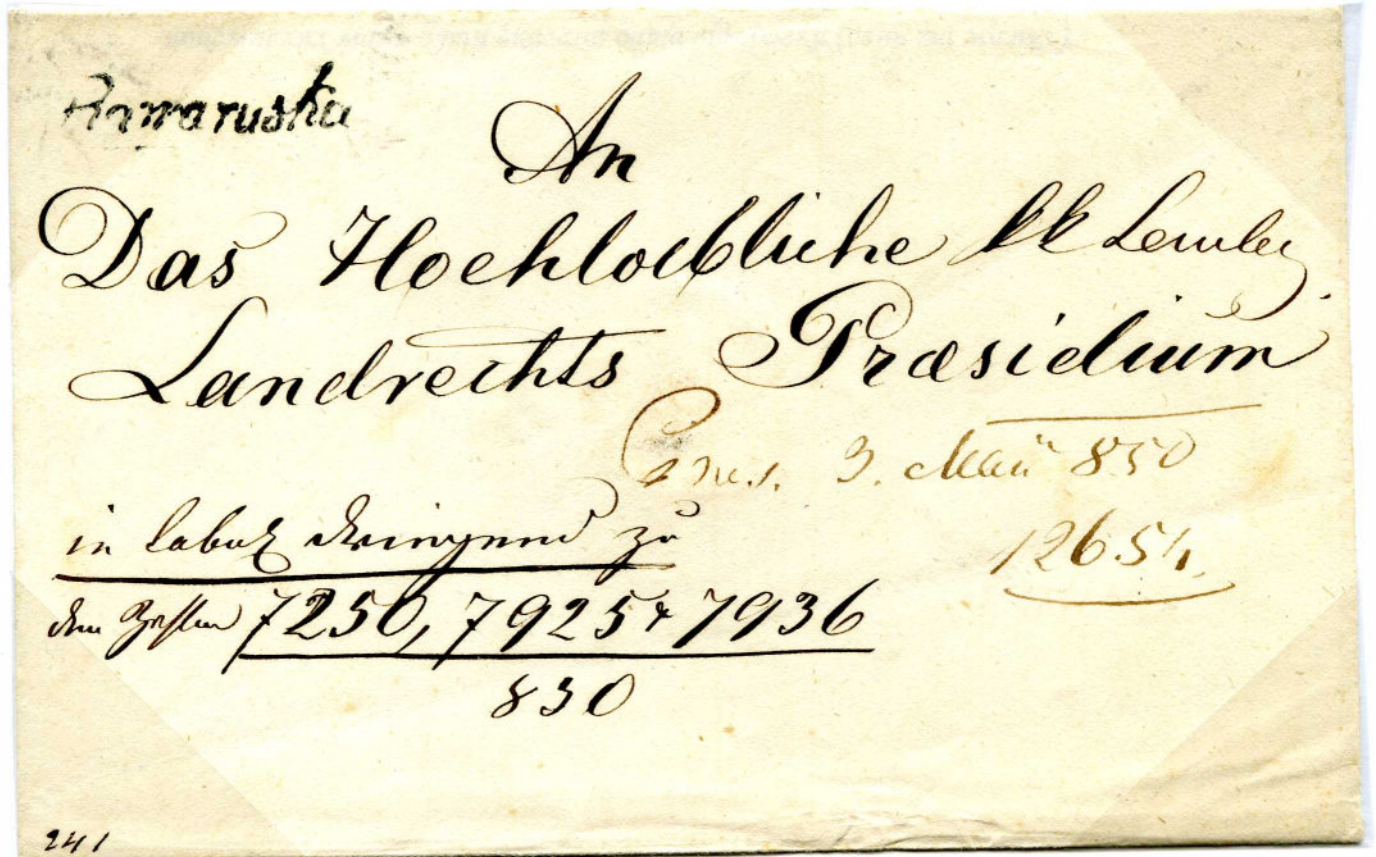 Rawaruska
An
Das Hochloebliche kk Lemberg
Landrechts Præsidium
Præs. 3. Mai 850
12654
in labuz dringend zu
den Zahlen 7250, 7925 & 7936
850
241